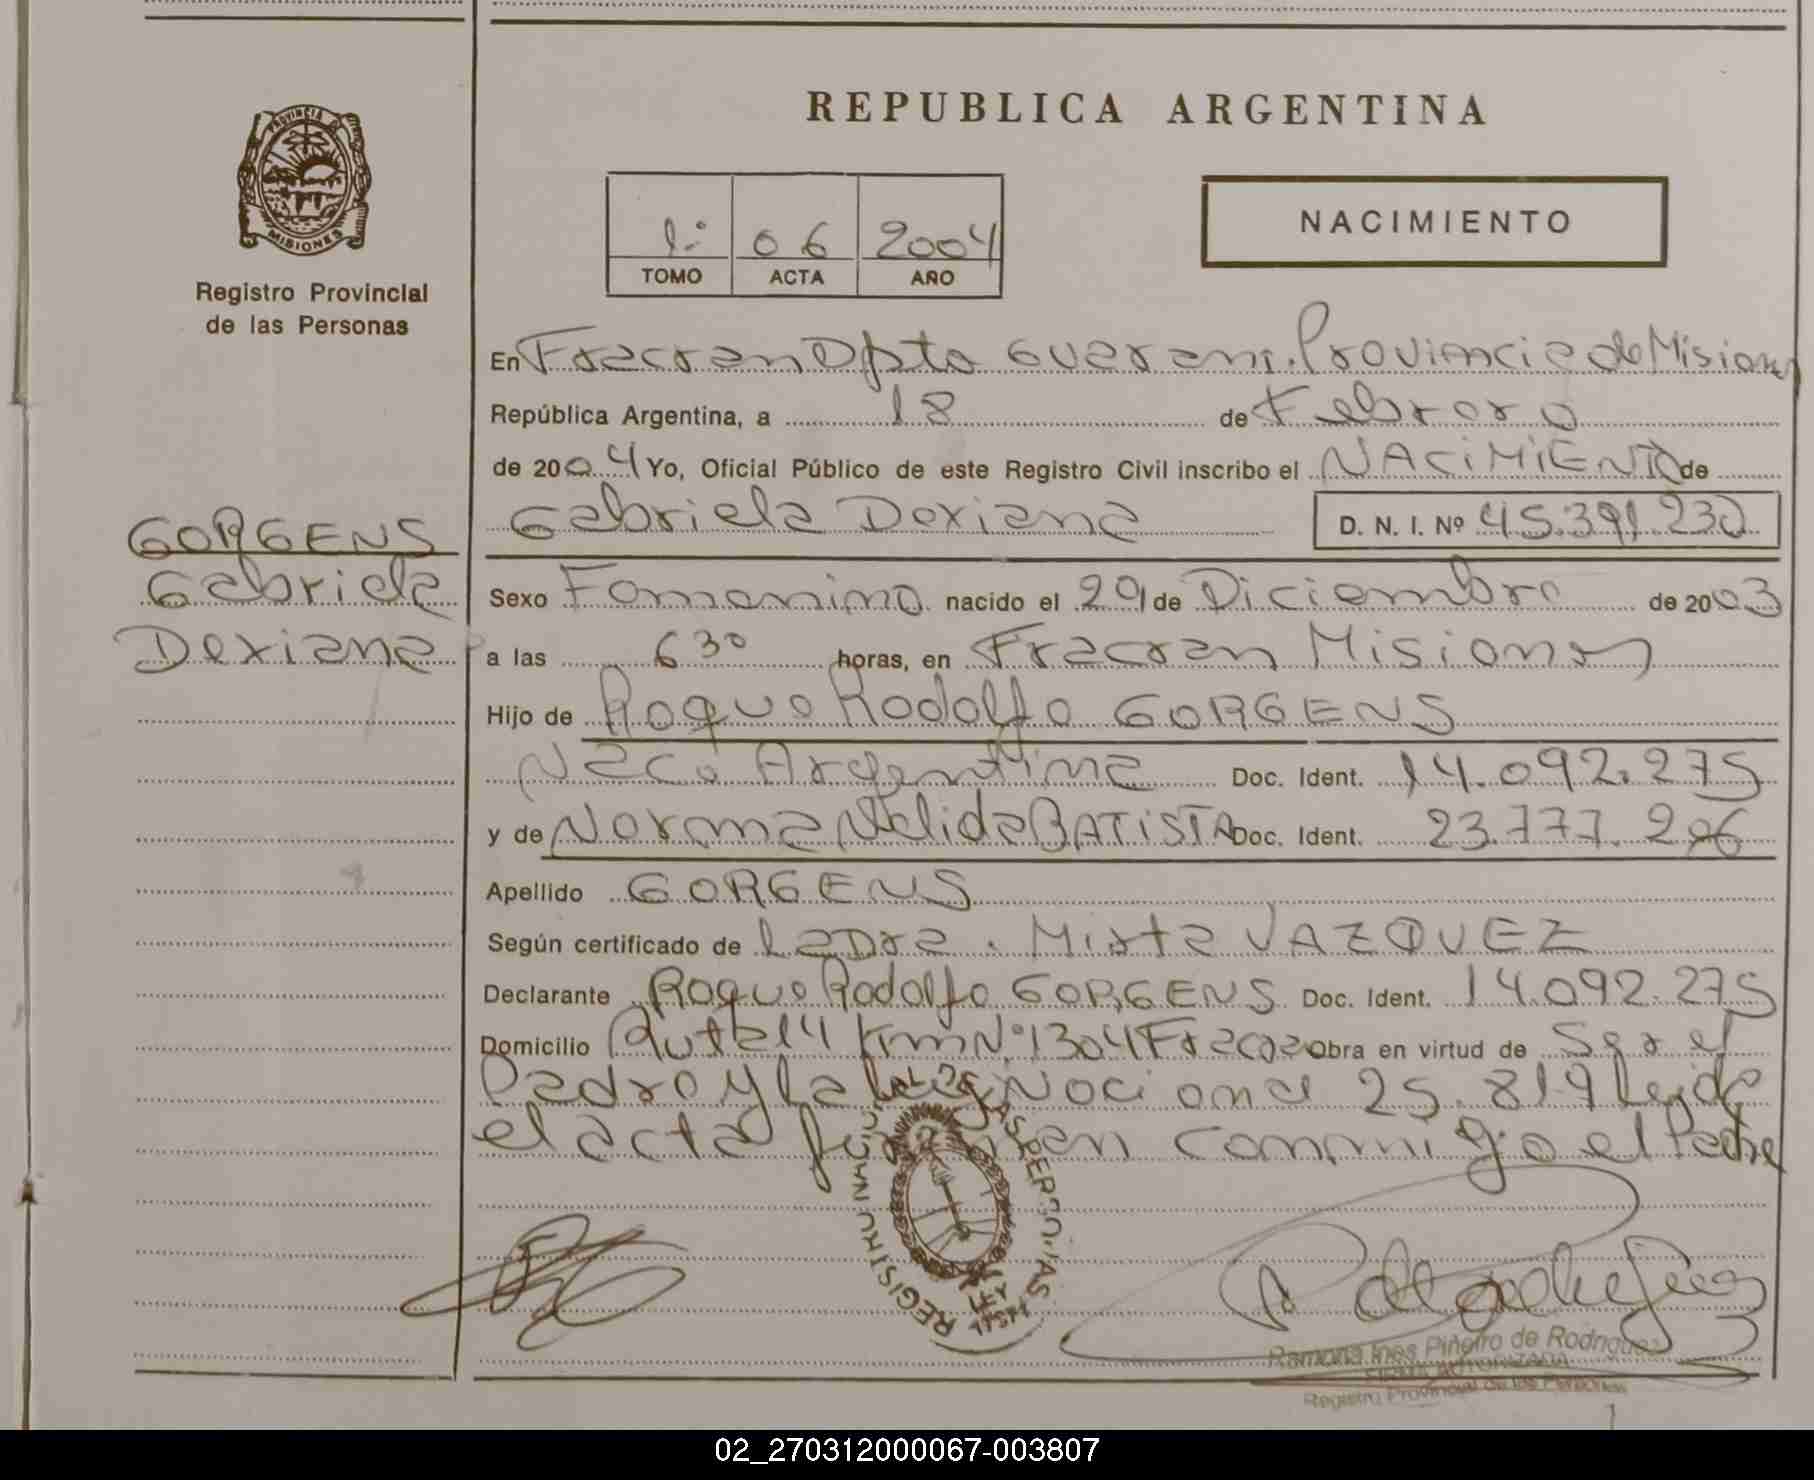 REPUBLICA ARGENTINA
PROVINCIA DE
MISIONES
Registro Provincial
de las Personas
1º 06 2004
TOMO ACTA AÑO
NACIMIENTO
En Fracran Dpto Guarani. Provincia de Misiones
República Argentina, a 18 de Febrero
de 2004 Yo, Oficial Público de este Registro Civil inscribo el NACIMIENTO de
Gabriela Dexiana D. N. I. Nº 45.391.230
GORGENS
Gabriela
Dexiana
Sexo Femenino nacido el 29 de Diciembre de 2003
a las 6 30 horas, en Fracran Misiones
Hijo de Roque Rodolfo GORGENS
Nac. Argentina Doc. Ident. 14.092.275
y de Norma Nelida BATISTA Doc. Ident. 23.777.206
Apellido GORGENS
Según certificado de La Dra. Mirta VAZQUEZ
Declarante Roque Rodolfo GORGENS Doc. Ident. 14.092.275
Domicilio Ruta 14 Km Nº 1304 Fracran Obra en virtud de Ser el
Padre y la Ley Nacional 25.819 Leida
el acta firman conmigo el Padre
REGISTRO DE LAS PERSONAS
Ramona Ines Piñeiro de Rodriguez
FIRMA AUTORIZADA
Registro Provincial de las Personas
02_270312000067-003807